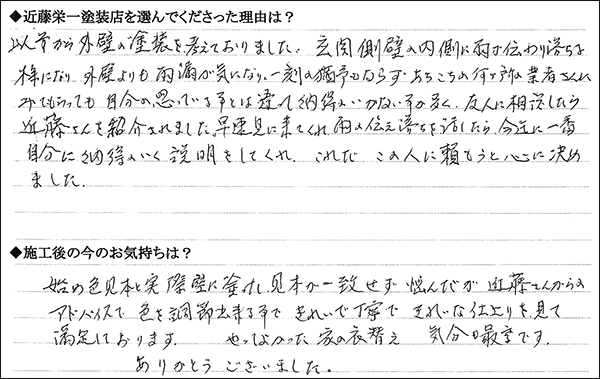 ◆近藤栄一塗装店を選んでくださった理由は？
以前から外壁の塗装を考えておりました。玄関側壁の内側に雨が伝わり落ちる
様になり外壁よりも雨漏が気になり。一刻の猶予もならず あちこちの何ヶ所の業者さんに
みてもらっても自分の思っている事とは違って納得のいかない事が多く、友人に相談したら
近藤さんを紹介されました。早速見に来てくれ雨の伝え落ちを話したら今迄に一番
自分に納得のいく説明をしてくれ、これだ この人に頼もうと心に決め
ました。
◆施工後の今のお気持ちは？
始め色見本と実際壁に塗れ見本が一致せず悩んだが近藤さんからの
アドバイスで色を調節出来る事できれいで丁寧できれいな仕上りを見て
満足しております。 やってよかった家の衣替え 気分も最高です。
ありがとうございました。